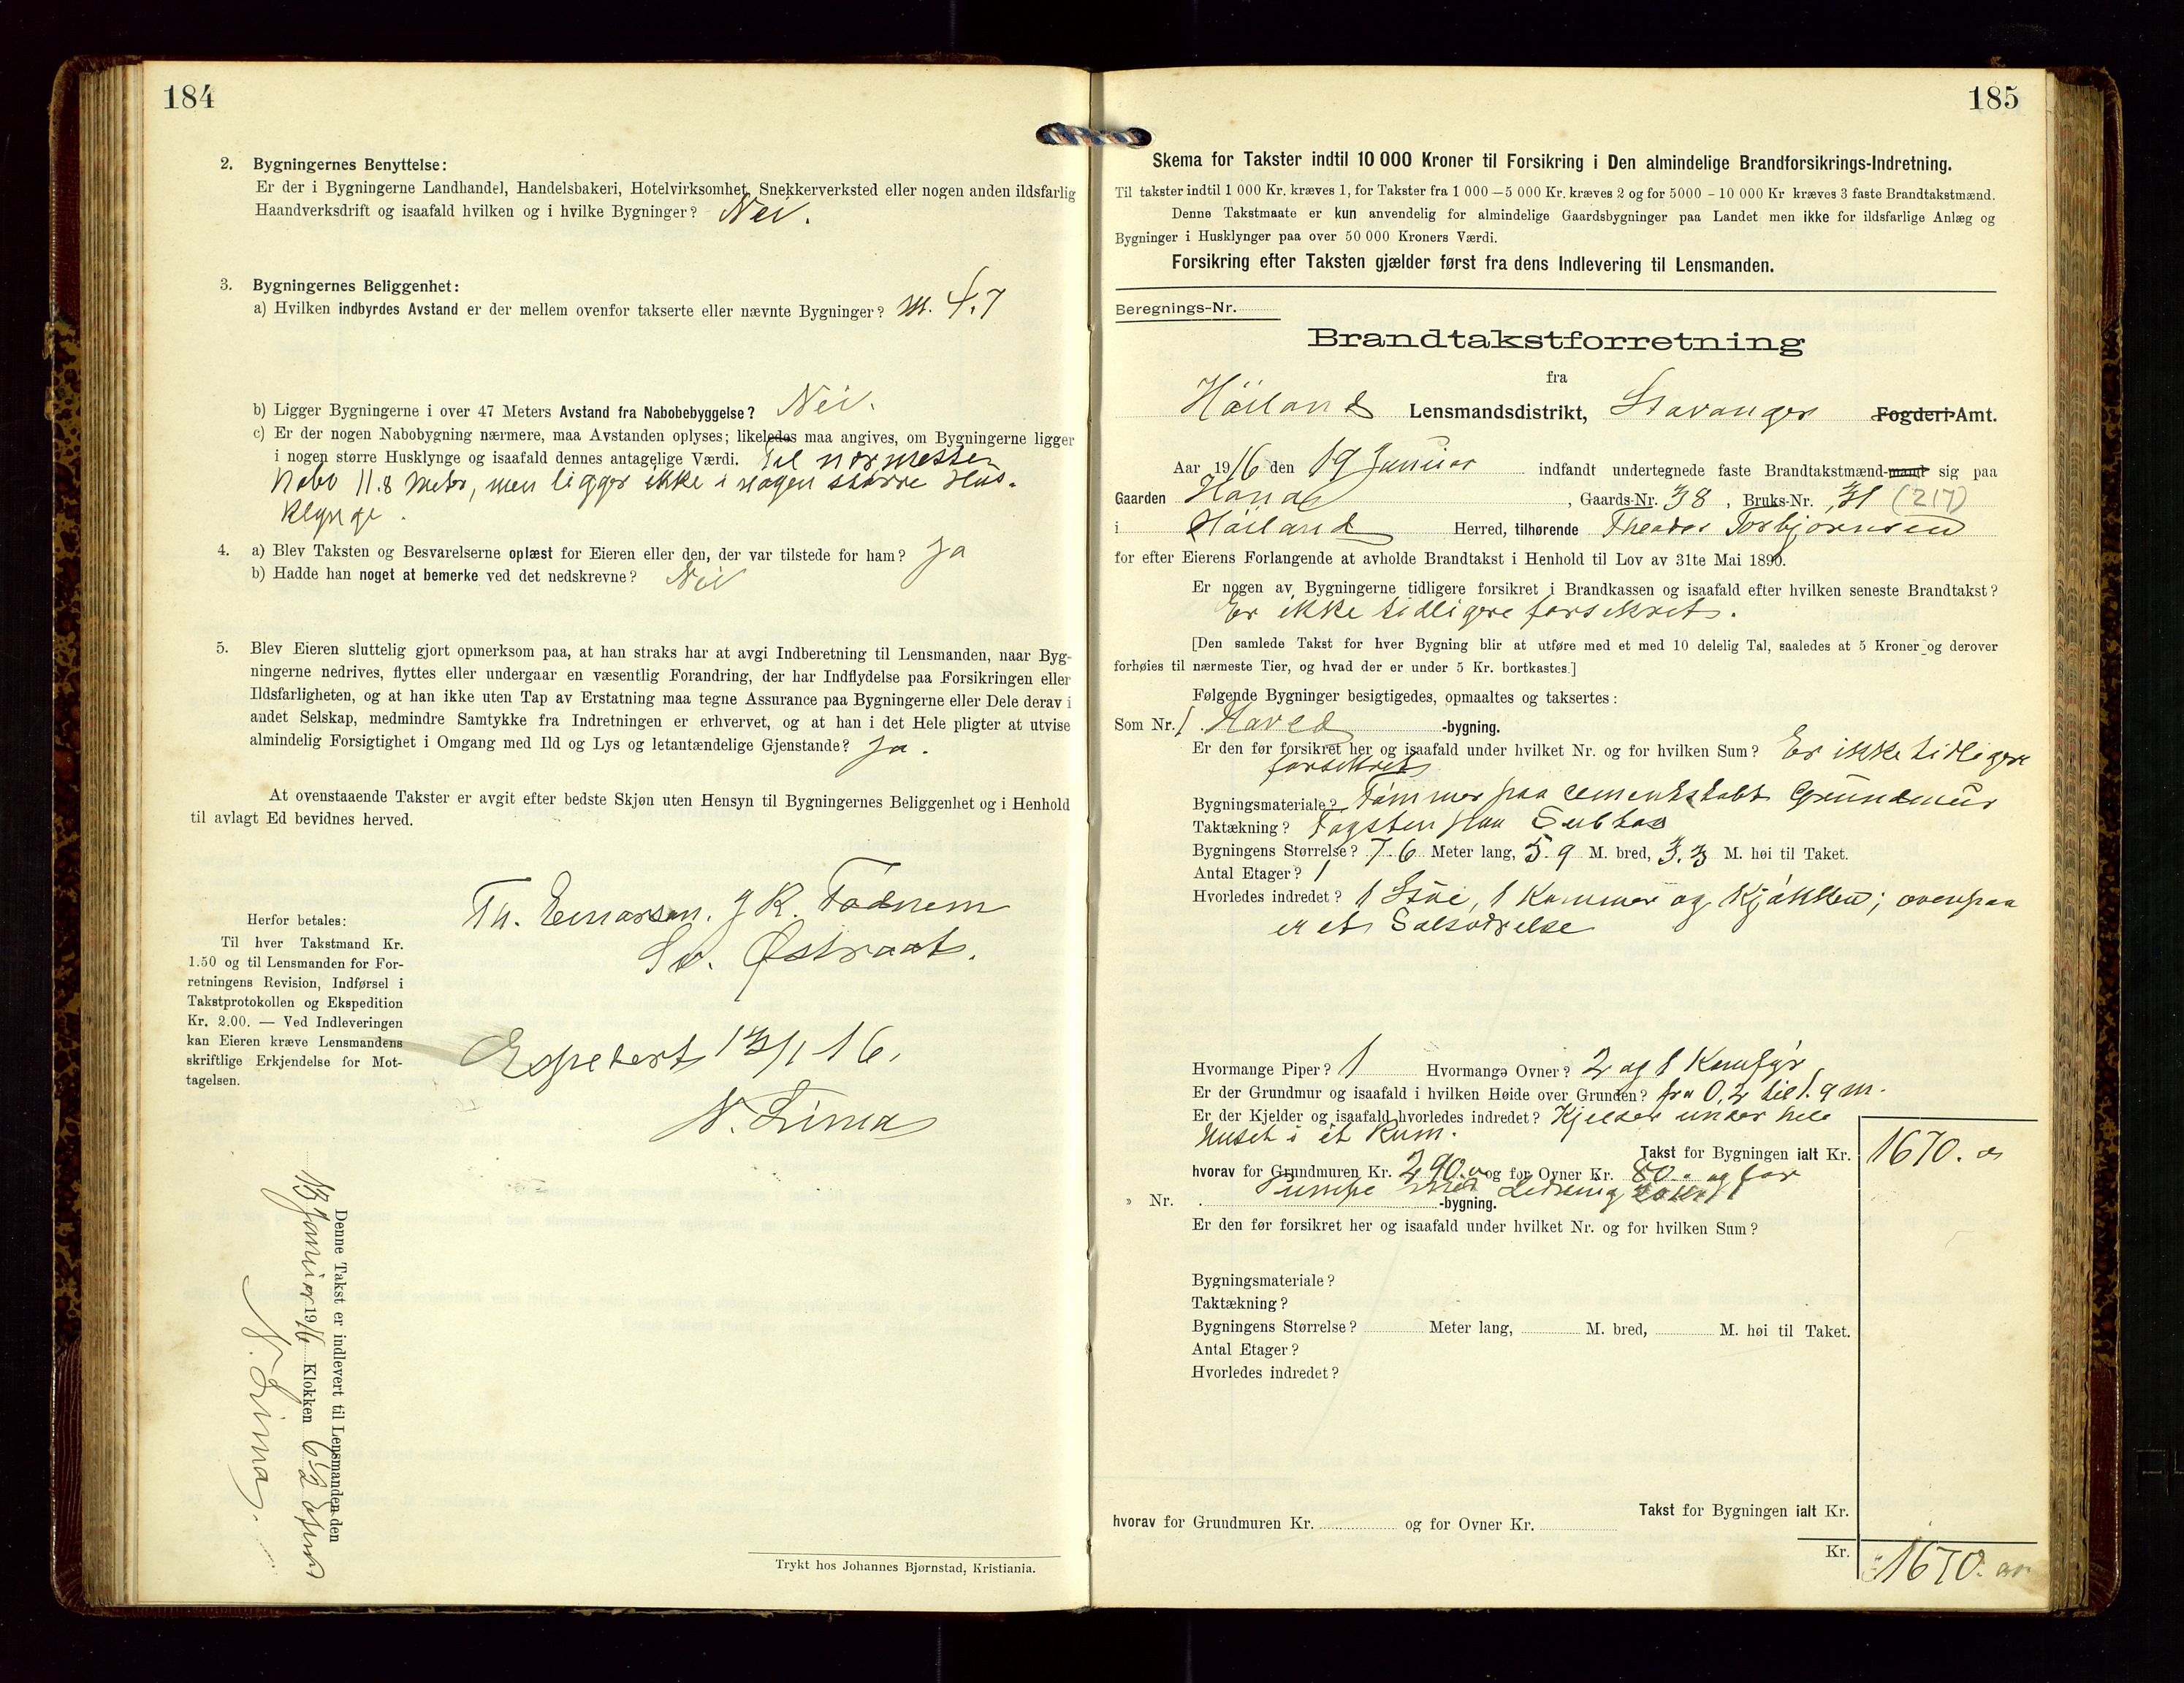 184
2. Bygningernes Benyttelse:
Er der i Bygningerne Landhandel, Handelsbakeri, Hotelvirksomhet, Snekkerverksted eller nogen anden ildsfarlig
Haandverksdrift og isaafald hvilken og i hvilke Bygninger? Nei.
3. Bygningernes Beliggenhet:
a) Hvilken indbyrdes Avstand er der mellem ovenfor takserte eller nævnte Bygninger? m. 4.7
b) Ligger Bygningerne i over 47 Meters Avstand fra Nabobebyggelse? Nei.
c) Er der nogen Nabobygning nærmere, maa Avstanden oplyses; likeledes maa angives, om Bygningerne ligger
i nogen større Husklynge og isaafald dennes antagelige Værdi. Til nærmeste
Nabo 11.8 Meter, men ligger ikke i nogen større Hus-
klynge.
4. a) Blev Taksten og Besvarelserne oplæst for Eieren eller den, der var tilstede for ham? Ja
b) Hadde han noget at bemerke ved det nedskrevne? Nei
5. Blev Eieren sluttelig gjort opmerksom paa, at han straks har at avgi Indberetning til Lensmanden, naar Byg-
ningerne nedrives, flyttes eller undergaar en væsentlig Forandring, der har Indflydelse paa Forsikringen eller
Ildsfarligheten, og at han ikke uten Tap av Erstatning maa tegne Assurance paa Bygningerne eller Dele derav i
andet Selskap, medmindre Samtykke fra Indretningen er erhvervet, og at han i det Hele pligter at utvise
almindelig Forsigtighet i Omgang med Ild og Lys og letantændelige Gjenstande? Ja.
At ovenstaaende Takster er avgit efter bedste Skjøn uten Hensyn til Bygningernes Beliggenhet og i Henhold
til avlagt Ed bevidnes herved.
Th. Einarsen. J K. Fodnem
Sv. Østraat.
Herfor betales:
Til hver Takstmand Kr.
1.50 og til Lensmanden for For-
retningens Revision, Indførsel i
Takstprotokollen og Ekspedition
Kr. 2.00. — Ved Indleveringen
kan Eieren kræve Lensmandens
skriftlige Erkjendelse for Mot-
tagelsen.
Expedert 13/1 16.
N. Lima
Denne Takst er indlevert til Lensmanden den
13 Januar 1916 Klokken 6½ Efmd
N. Lima.
Trykt hos Johannes Bjørnstad, Kristiania.
185
Skema for Takster indtil 10 000 Kroner til Forsikring i Den almindelige Brandforsikrings-Indretning.
Til takster indtil 1 000 Kr. kræves 1, for Takster fra 1 000 — 5 000 Kr. kræves 2 og for 5000 - 10 000 Kr kræves 3 faste Brandtakstmænd.
Denne Takstmaate er kun anvendelig for almindelige Gaardsbygninger paa Landet men ikke for ildsfarlige Anlæg og
Bygninger i Husklynger paa over 50 000 Kroners Værdi.
Forsikring efter Taksten gjælder først fra dens Indlevering til Lensmanden.
Beregnings-Nr.
Brandtakstforretning
fra
Höiland Lensmandsdistrikt, Stavanger Fogderi-Amt.
Aar 1916 den 19 Januar indfandt undertegnede faste Brandtakstmænd-mand sig paa
Gaarden Hana, Gaards-Nr. 38, Bruks-Nr. 31 (217)
i Höiland Herred, tilhørende Theodor Torbjørnsen
for efter Eierens Forlangende at avholde Brandtakst i Henhold til Lov av 31te Mai 1890.
Er nogen av Bygningerne tidligere forsikret i Brandkassen og isaafald efter hvilken seneste Brandtakst?
Er ikke tidligere forsikret.
[Den samlede Takst for hver Bygning blir at utføre med et med 10 delelig Tal, saaledes at 5 Kroner og derover
forhøies til nærmeste Tier, og hvad der er under 5 Kr. bortkastes.]
Følgende Bygninger besigtigedes, opmaaltes og taksertes:
Som Nr. 1. Hoved -bygning.
Er den før forsikret her og isaafald under hvilket Nr. og for hvilken Sum? Er ikke tidligere
forsikret
Bygningsmateriale? Tömmer paa cementstøbt Grundmur
Taktækning? Tagsten paa Subtag
Bygningens Størrelse? 7.6 Meter lang, 5.9 M. bred, 3.3 M. høi til Taket.
Antal Etager? 1
Hvorledes indredet? 1 Stue, 1 Kammer og Kjökken; ovenpaa
er et Salsværelse
Hvormange Piper? 1 Hvormange Ovner? 2 og 1 Komfyr
Er der Grundmur og isaafald i hvilken Høide over Grunden? fra 0,2 til 1.9 m.
Er der Kjelder og isaafald hvorledes indredet? Kjelder under hele
Huset i et Rum.
Takst for Bygningen ialt Kr. 1670.
hvorav for Grundmuren Kr. 290. og for Ovner Kr. 80. og for
Pumpe med Ledning
» Nr. -bygning.
Er den før forsikret her og isaafald under hvilket Nr. og for hvilken Sum?
Bygningsmateriale?
Taktækning?
Bygningens Størrelse? Meter lang, M. bred, M. høi til Taket.
Antal Etager?
Hvorledes indredet?
Takst for Bygningen ialt Kr.
hvorav for Grundmuren Kr. og for Ovner Kr.
Kr. 1670.